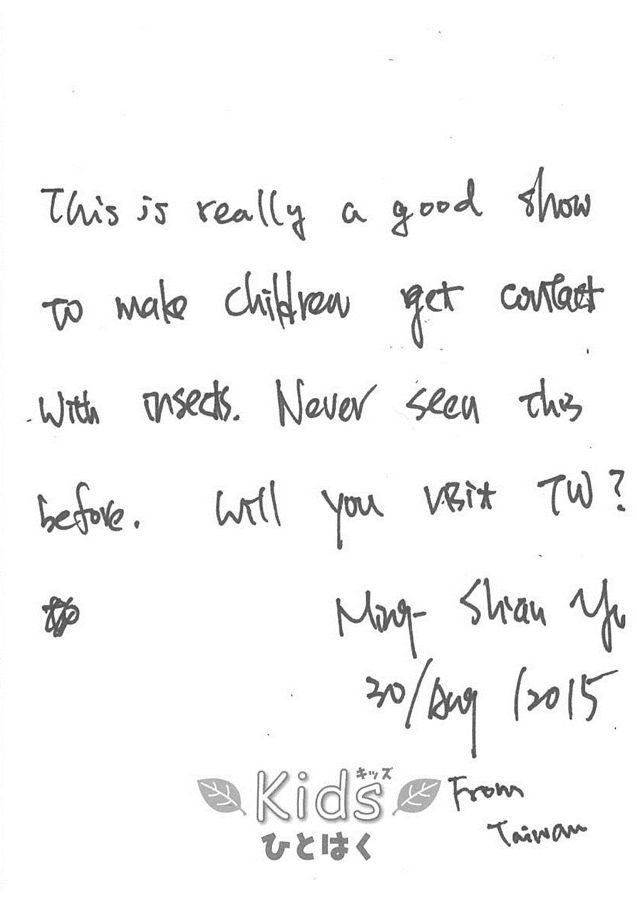 This is really a good show
to make children get contact
with insects. Never seen this
before. Will you visit TW?
Ming-Shian Yu
30/Aug/2015
キッズ
Kids
ひとはく
From
Taiwan